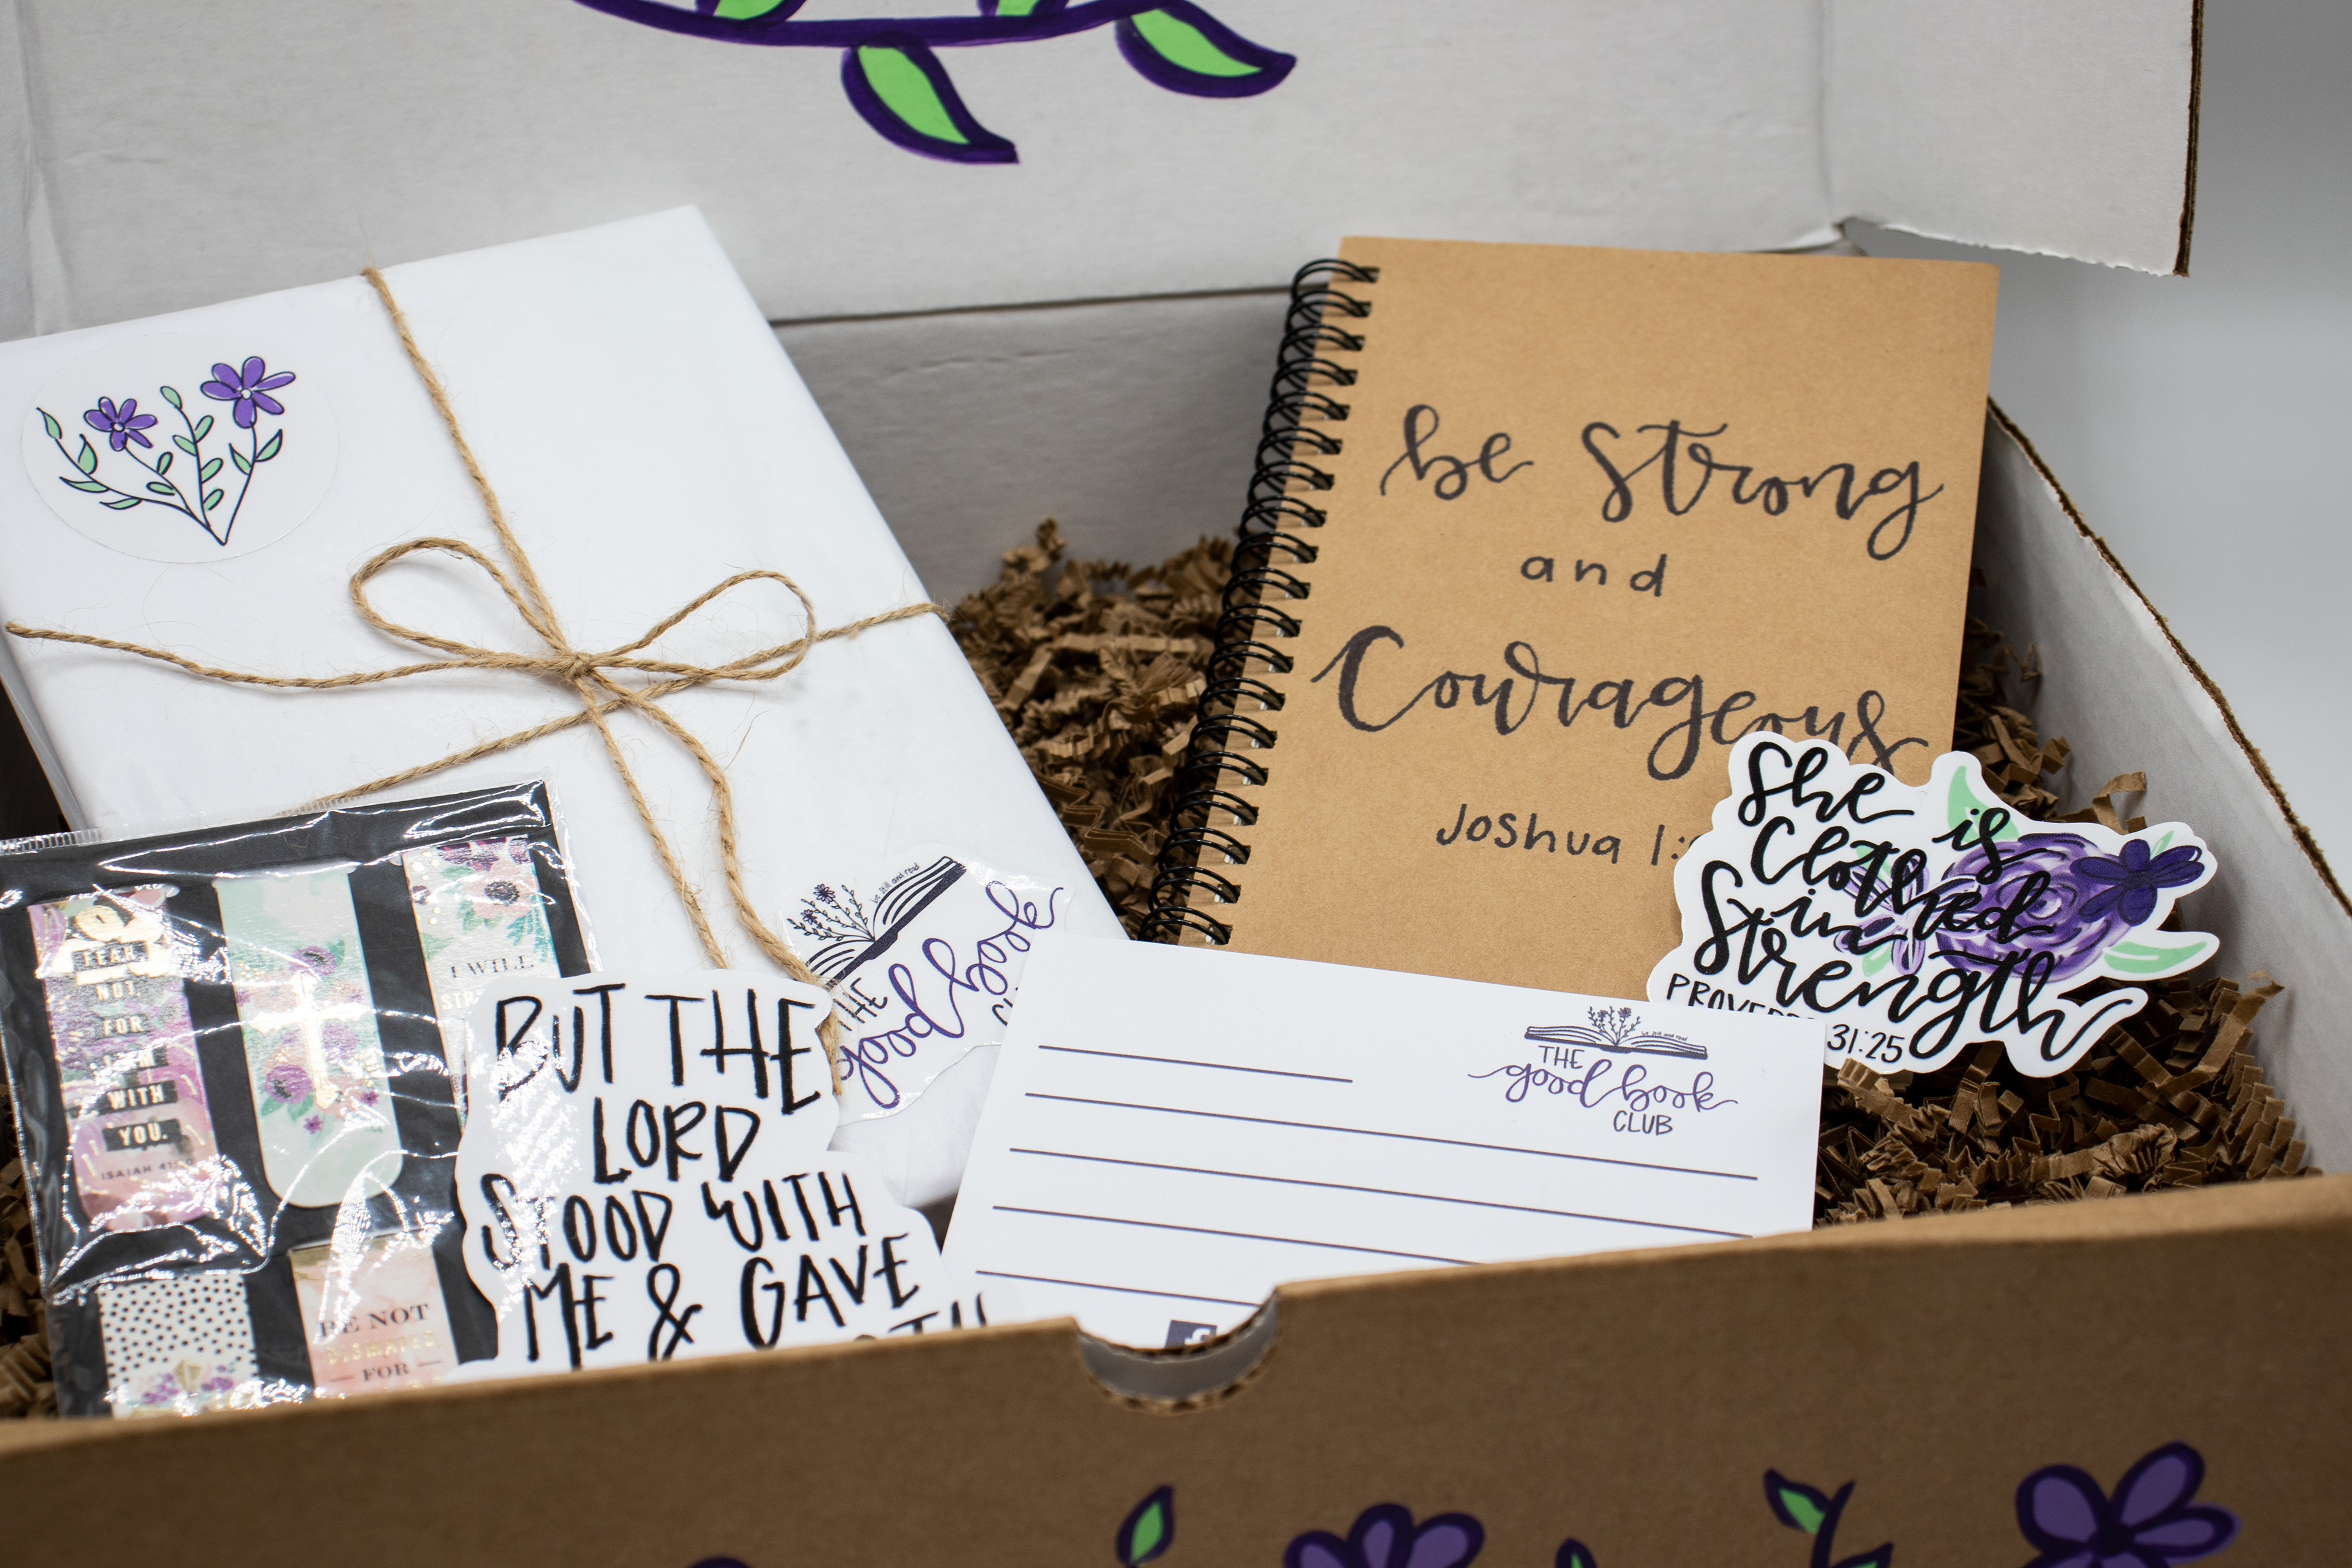 be Strong
and
Courageous
Joshua 1:
She is
Clothed
in
Strength
PROVERBS 31:25
be still and read
THE
good book
CLUB
be still and read
THE
good book
BUT THE
LORD
STOOD WITH
ME & GAVE
FEAR
NOT
FOR
I AM
WITH
YOU.
ISAIAH 41:10
I WILL
BE NOT
DISMAYED
FOR